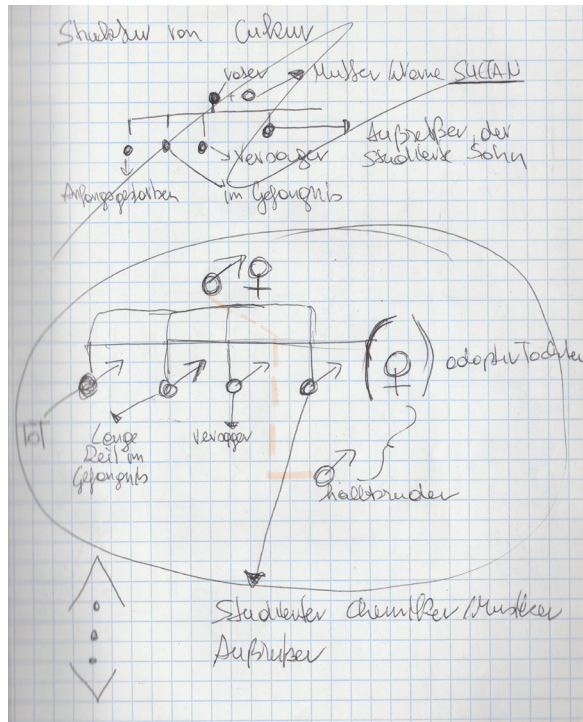 Struktur von Cukur
Vater
+
Mutter Warne SULTAN
Außreißer, der
studierte Sohn
versager
im Gefängnis
Anfangsgestorben
adoptiv Tochter
ToT
Lange
Zeit im
Gefängnis
versager
halbbruder
Studierter Chemiker/Musiker
Außreißer